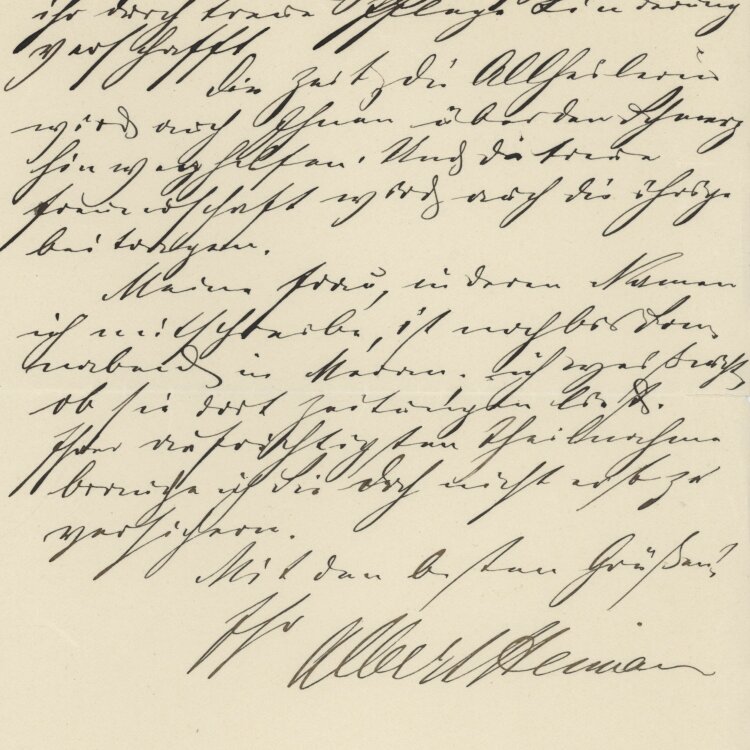 ihr durch treue Pflege Linderung
verschafft
Die Zeit, die Allheilerin
wird auch Ihnen über den Schmerz
hinweghelfen. Und die treue
Freundschaft wird auch die ihrige
beitragen.
Meine Frau, in deren Namen
ich mitschreibe, ist noch bis Sonn-
abend in Meran. ich weiß nicht,
ob sie dort Zeitungen liest.
Ihrer aufrichtigsten Theilnahme
brauche ich Sie doch nicht erst zu
versichern.
Mit den besten Grüßen,
Ihr
Albert